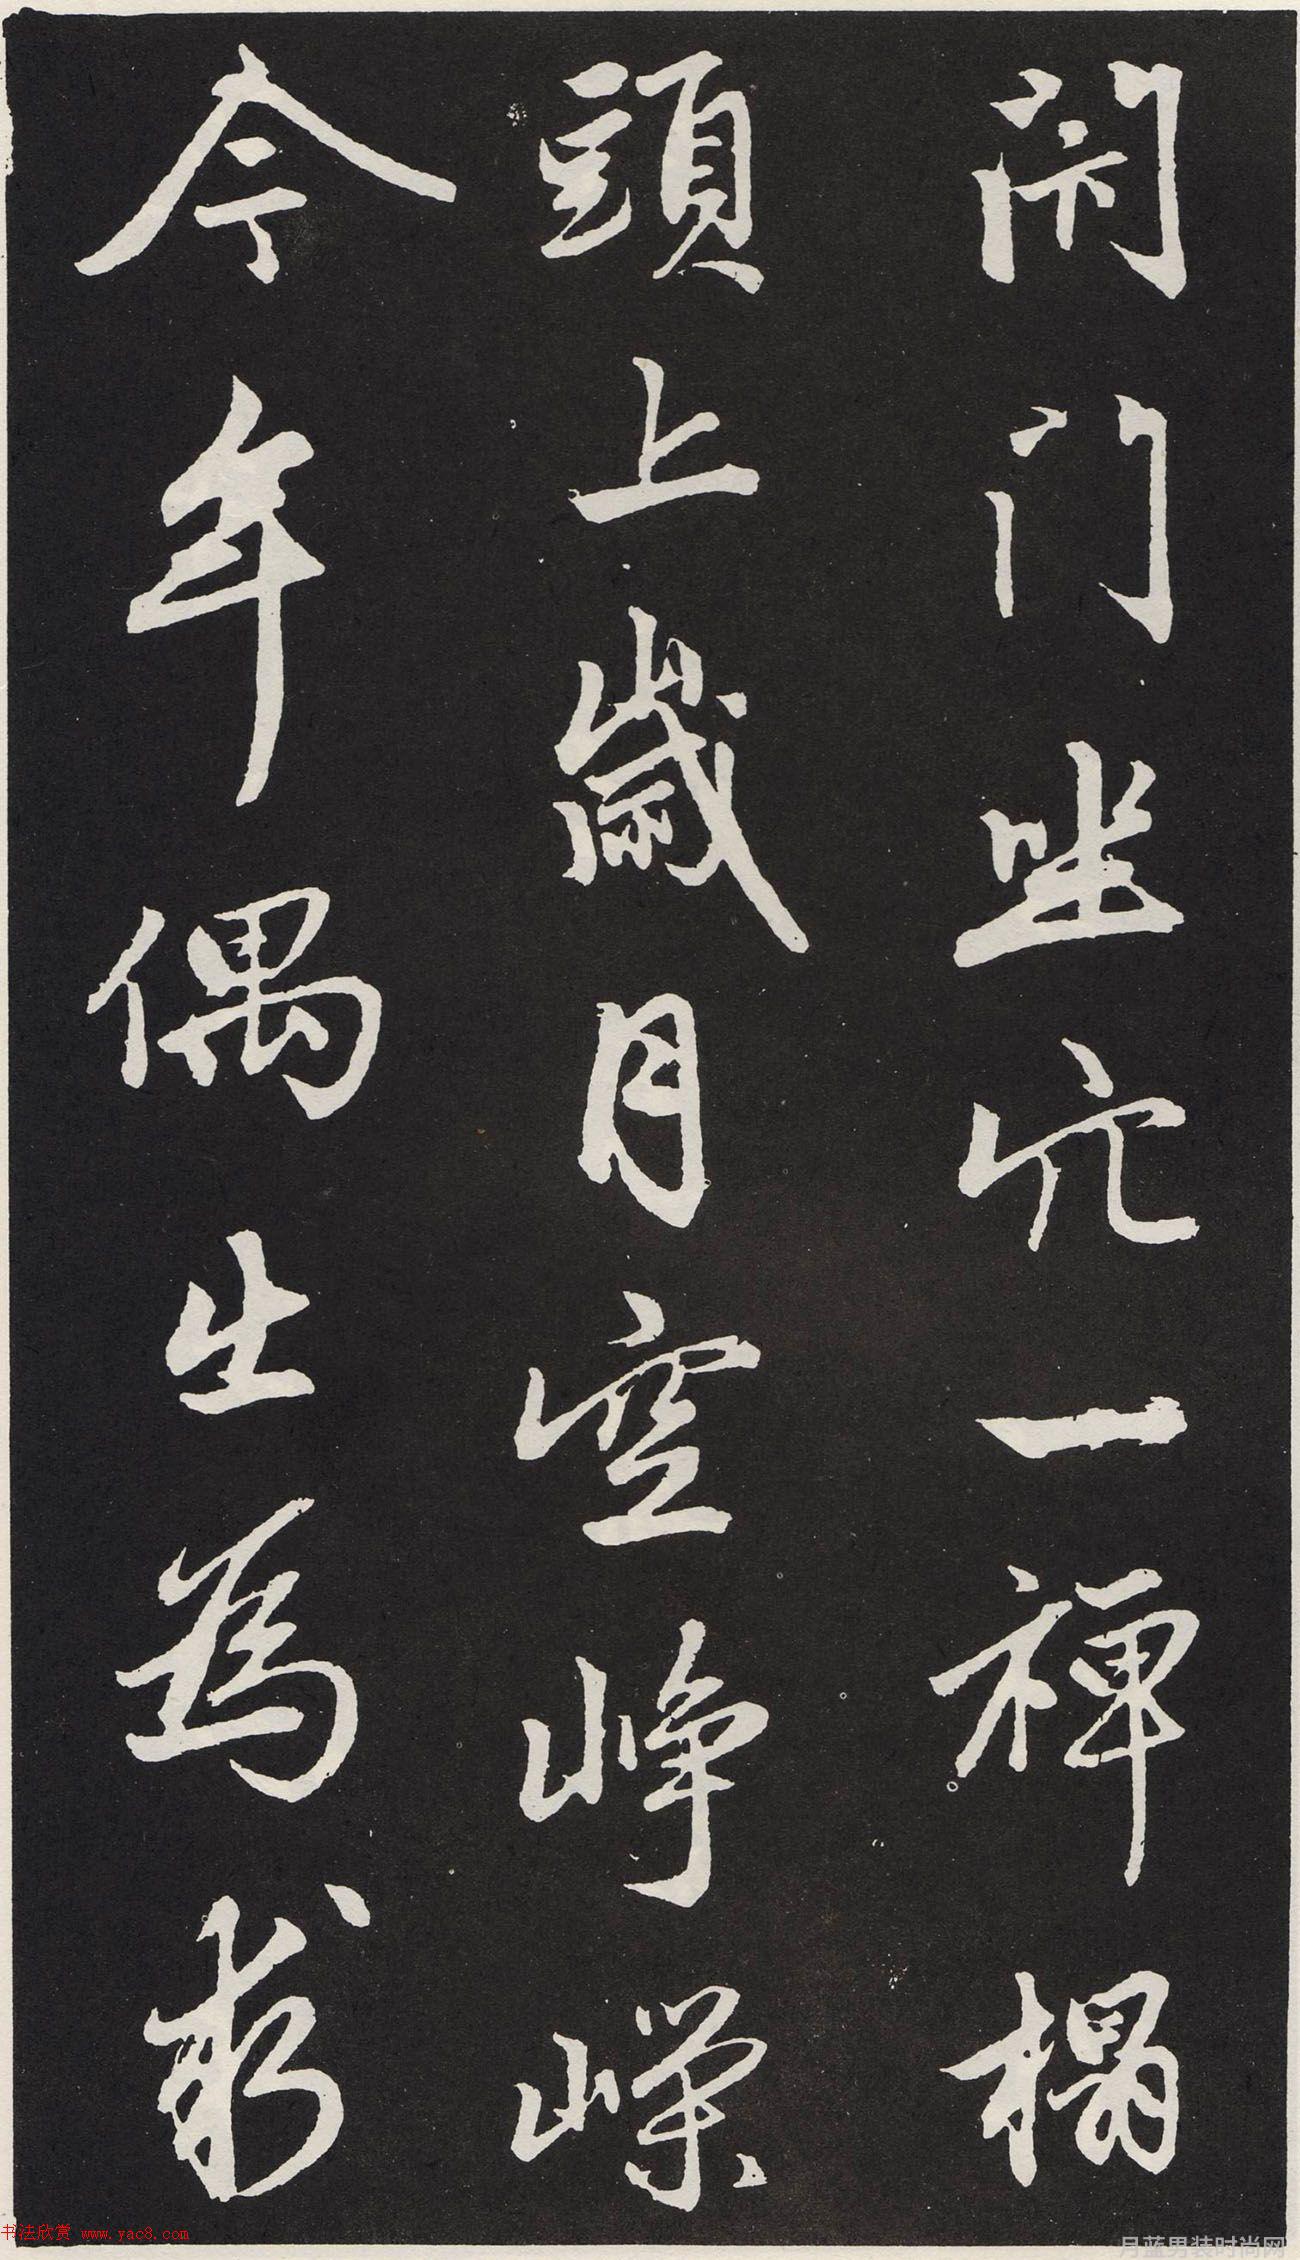 閇門坐穴一禪榻
頭上歲月空崢嶸
今年偶出爲求
书法欣赏 www.yac8.com
月蓝男装时尚网